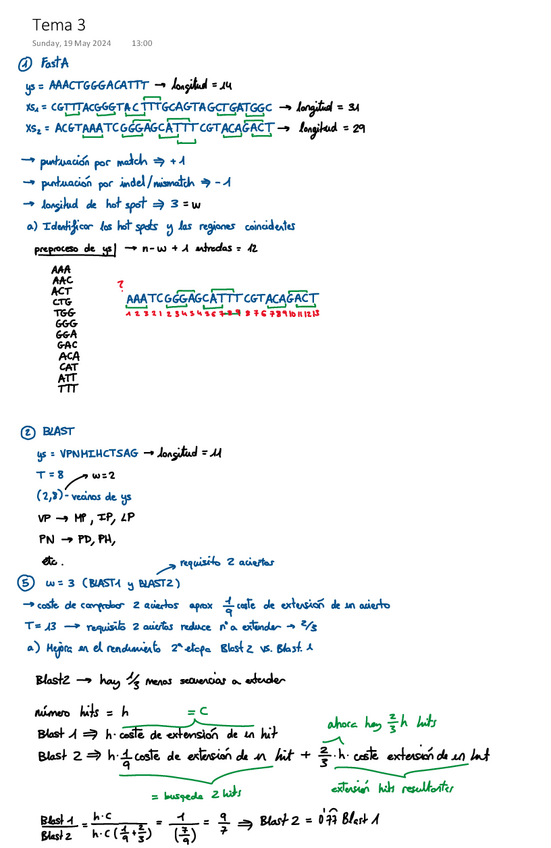 Tema 3
Sunday, 19 May 2024 13:00
① FastA
ys = AAACTGGGACATTT → longitud = 14
xs₁ = CGTTTACGGGTACTTTGCAGTAGCTGATGGC → longitud = 31
xs₂ = ACGTAAATCGGGAGCATTTCGTACAGACT → longitud = 29
→ puntuación por match ⇒ +1
→ puntuación por indel/mismatch ⇒ -1
→ longitud de hot spot ⇒ 3 = w
a) Identificar los hot spots y las regiones coincidentes
preproceso de ys → n-w+1 entradas = 12
AAA
AAC
ACT
CTG
TGG
GGG
GGA
GAC
ACA
CAT
ATT
TTT
?
AAATCGGGAGCATTTCGTACAGACT
1 2 3 2 1 2 3 4 5 4 5 6 7 8 9 8 7 6 7 8 9 10 11 12 13
② BLAST
ys = VPNMIHCTSAG → longitud = 11
T = 8 w=2
(2,8)-vecinos de ys
VP → MP, IP, LP
PN → PD, PH,
etc.
requisito 2 aciertos
⑤ w = 3 (BLAST1 y BLAST2)
→ coste de comprobar 2 aciertos aprox 1/9 coste de extensión de un acierto
T = 13 → requisito 2 aciertos reduce nº a extender → 2/3
a) Mejora en el rendimiento 2ª etapa Blast 2 vs. Blast 1
Blast2 → hay 1/3 menos secuencias a extender
número hits = h = C
ahora hay 2/3 h hits
Blast 1 ⇒ h · coste de extensión de un hit
Blast 2 ⇒ h · 1/9 coste de extensión de un hit + 2/3 · h · coste extensión de un hit
= busqueda 2 hits
extensión hits resultantes
Blast 1/Blast 2 = h·C/h·C(1/9 + 2/3) = 1/(7/9) = 9/7 ⇒ Blast 2 = 0'77 Blast 1